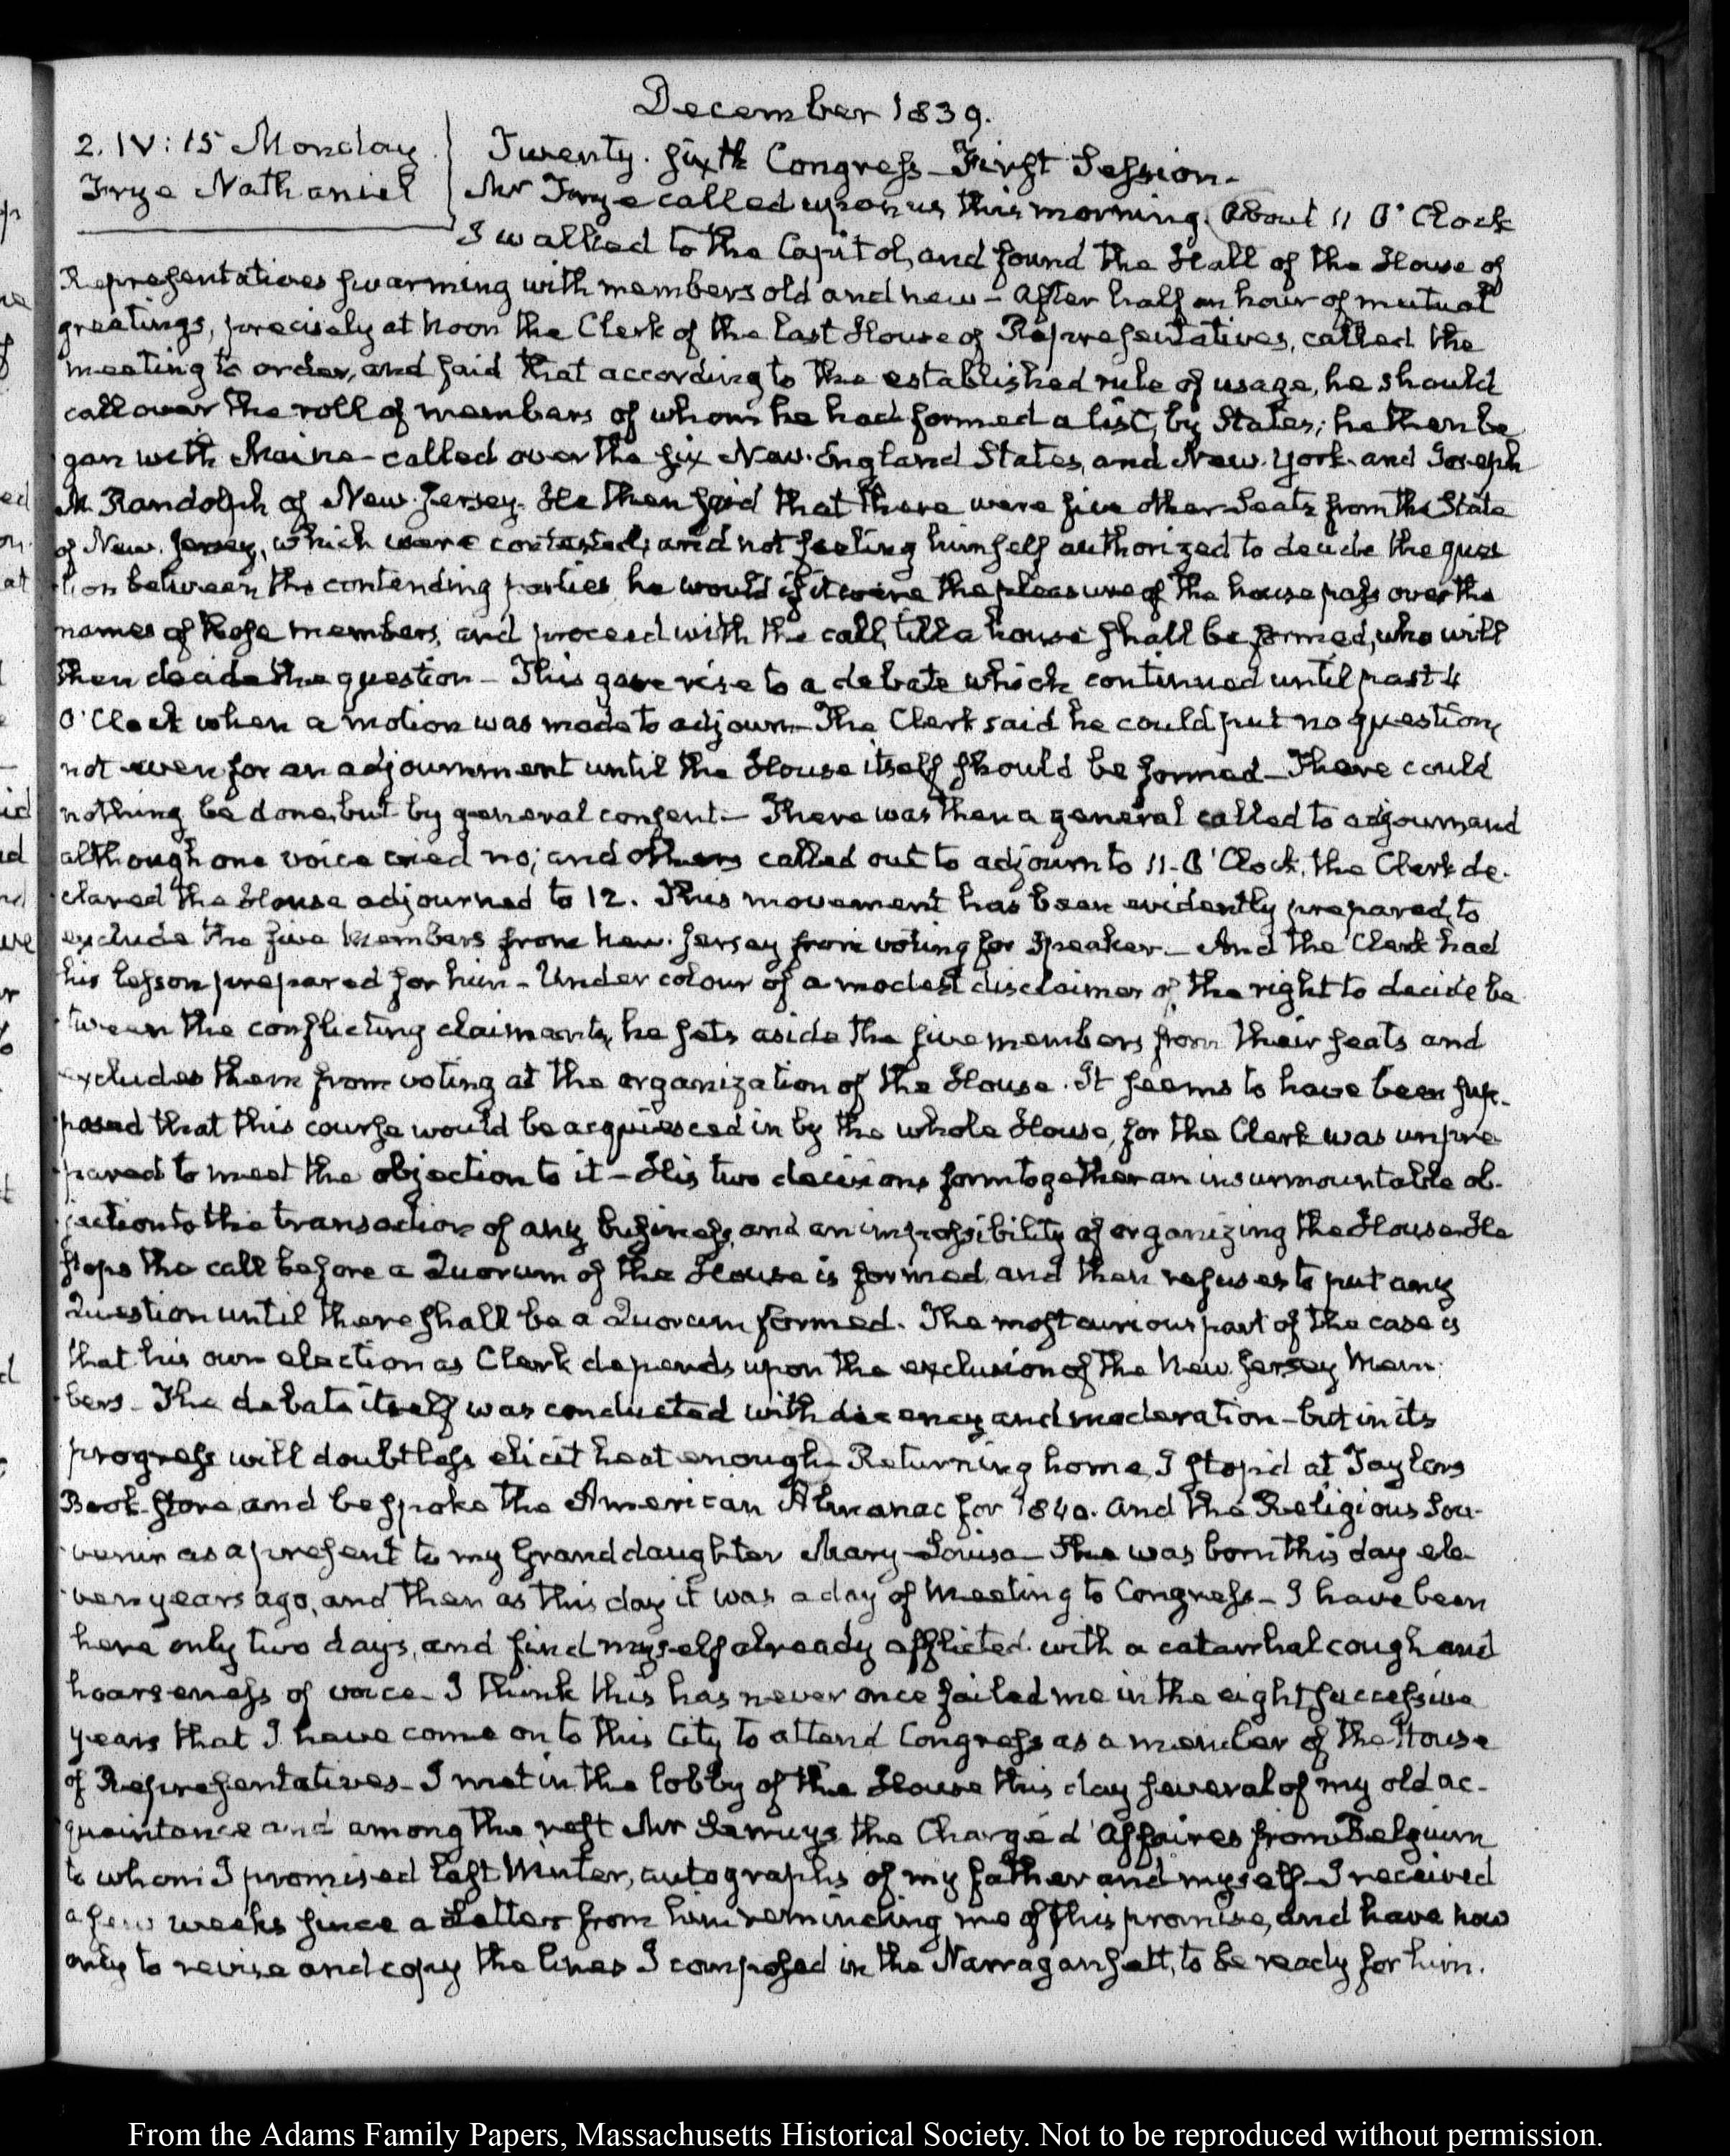 December 1839.
2. IV: 15 Monday
Frye Nathaniel
Twenty-sixth Congress—First Session—
Mr Frye called upon us this morning. About 11 O'Clock
I walked to the Capitol, and found the Hall of the House of
Representatives swarming with members old and new—After half an hour of mutual
greetings, precisely at Noon the Clerk of the last House of Representatives, called the
meeting to order, and said that according to the established rule of usage, he should
call over the roll of members of whom he had formed a list, by States; he then be
gan with Maine—called over the six New-England States, and New-York and Joseph
F. Randolph of New-Jersey. He then said that there were five other Seats from the State
of New-Jersey, which were contested; and not feeling himself authorized to decide the ques
tion between the contending parties, he would if it were the pleasure of the house pass over the
names of those members, and proceed with the call, till a house shall be formed, who will
then decide the question—This gave rise to a debate which continued until past 4
O'Clock when a motion was made to adjourn—The Clerk said he could put no question,
not even for an adjournment until the House itself should be formed—There could
nothing be done, but by general consent—There was then a general called to adjourn, and
although one voice cried no; and others called out to adjourn to 11-O'Clock, the Clerk de-
clared the House adjourned to 12. This movement has been evidently prepared, to
exclude the five Members from New-Jersey from voting for Speaker—And the Clerk had
his lesson prepared for him—Under colour of a modest disclaimer of the right to decide be
tween the conflicting claimants, he sets aside the five members from their seats and
excludes them from voting at the organization of the House. It seems to have been sup-
posed that this course would be acquiesced in by the whole House, for the Clerk was unpre
pared to meet the objection to it—His two decisions form together an insurmountable ob-
jection to the transaction of any business, and an impossibility of organizing the House—He
stops the call before a Quorum of the House is formed, and then refuses to put any
Question until there shall be a Quorum formed. The most curious part of the case is
that his own election as Clerk depends upon the exclusion of the New-Jersey Mem-
bers—The debate itself was conducted with decency and moderation—but in its
progress will doubtless elicit heat enough—Returning home, I stop'd at Taylors
Book-store, and bespoke the American Almanac for 1840. and the Religious Sou-
venir as a present to my Granddaughter Mary-Louisa—She was born this day ele-
ven years ago, and then as this day it was a day of Meeting to Congress—I have been
here only two days, and find myself already afflicted with a catarrhal cough and
hoarseness of voice—I think this has never once failed me in the eight successive
years that I have come on to this City to attend Congress as a member of the House
of Representatives—I met in the lobby of the House this day several of my old ac-
quaintance and among the rest Mr Serruys the Chargé d'Affaires from Belgium
to whom I promised last Winter, autographs of my father and myself—I received
a few weeks since a Letter from him reminding me of this promise, and have now
only to revise and copy the lines I composed in the Narragansett, to be ready for him.
From the Adams Family Papers, Massachusetts Historical Society. Not to be reproduced without permission.